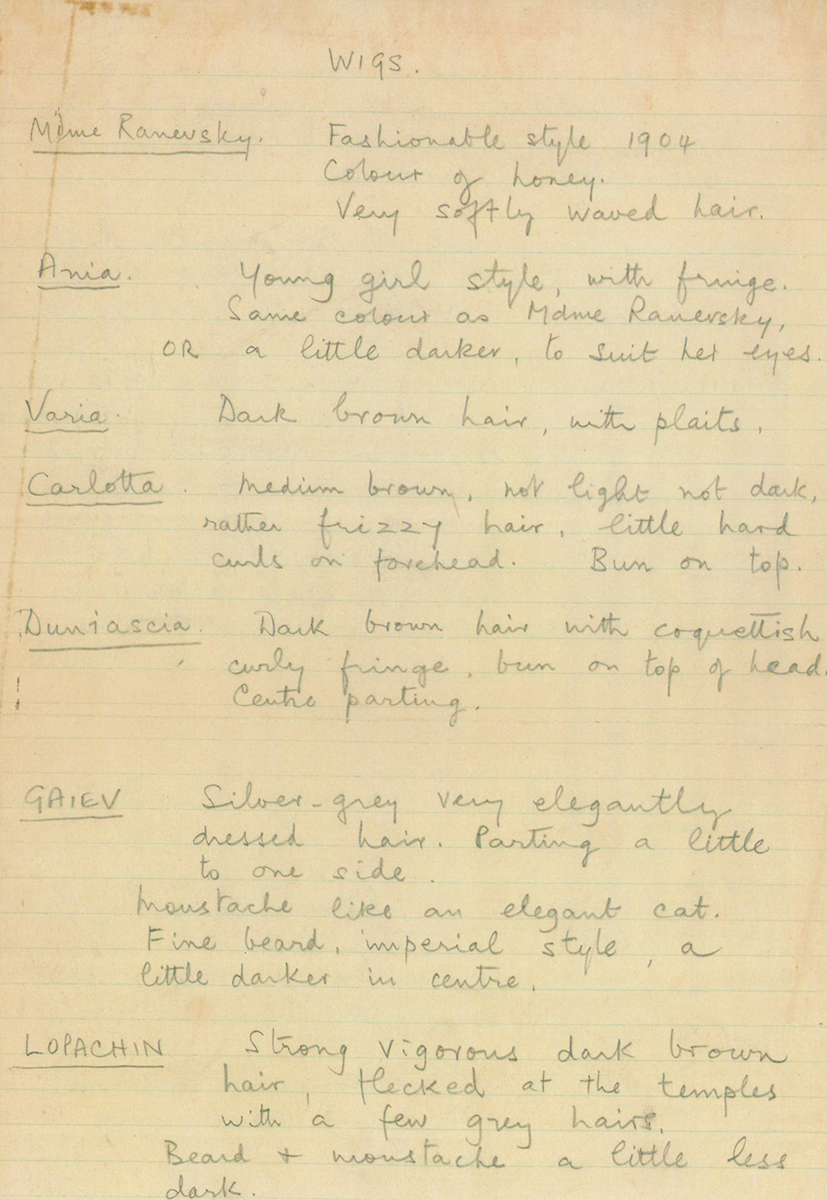 WIGS.
Mdme Ranevsky. Fashionable style 1904
Colour of honey.
Very softly waved hair.
Ania. Young girl style, with fringe.
Same colour as Mdme Ranevsky,
OR a little darker, to suit her eyes.
Varia. Dark brown hair, with plaits.
Carlotta. Medium brown, not light not dark,
rather frizzy hair, little hard
curls on forehead. Bun on top.
Duniascia. Dark brown hair with coquettish
curly fringe, bun on top of head.
Centre parting.
GAIEV Silver-grey very elegantly
dressed hair. Parting a little
to one side.
Moustache like an elegant cat.
Fine beard, imperial style, a
little darker in centre.
LOPACHIN Strong vigorous dark brown
hair, flecked at the temples
with a few grey hairs.
Beard + moustache a little less
dark.